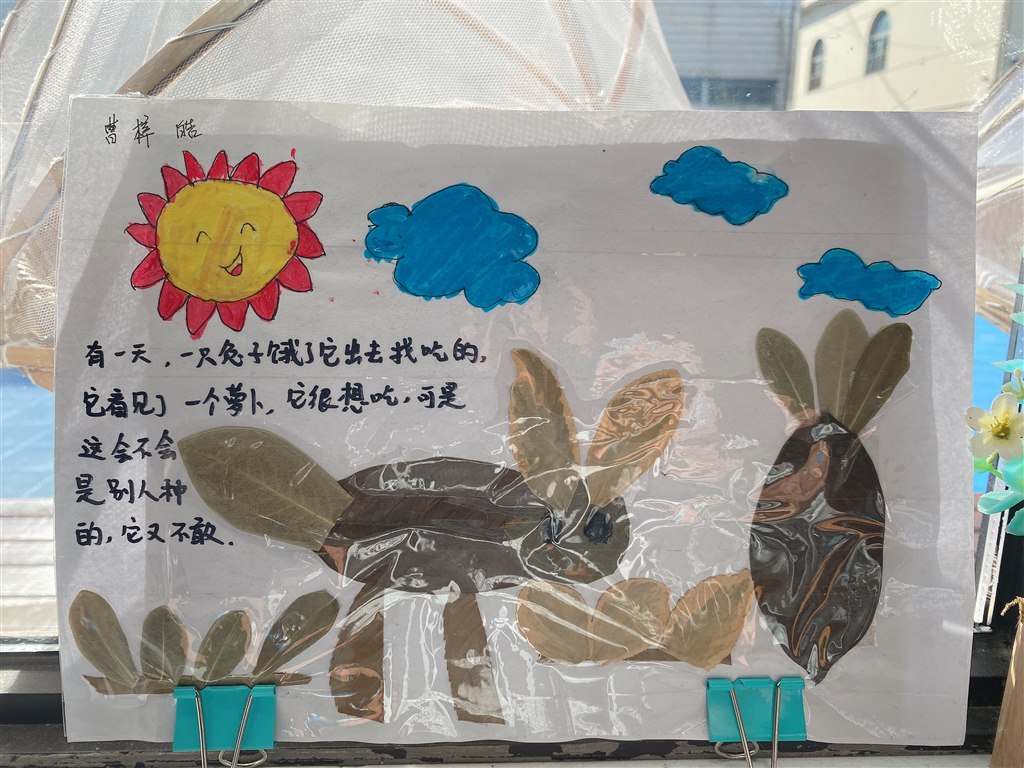 曹梓皓
有一天,一只兔子饿了它出去找吃的,
它看见了一个萝卜,它很想吃,可是
这会不会
是别人种
的,它又不敢.